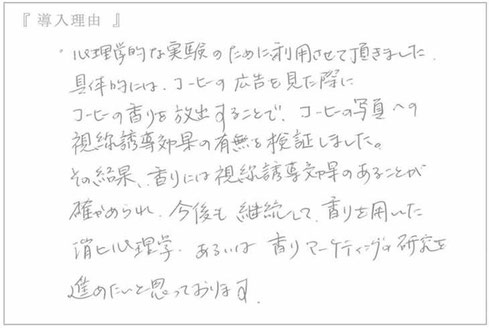 『 導入理由 』
・心理学的な実験のために利用させて頂きました.
具体的には、コーヒーの広告を見た際に
コーヒーの香りを放出することで、コーヒーの写真への
視線誘導効果の有無を検証しました。
その結果、香りには視線誘導効果のあることが
確かめられ、今後も継続して、香りを用いた
消ヒ心理学、あるいは香りマーケティングの研究を
進めたいと思っております.